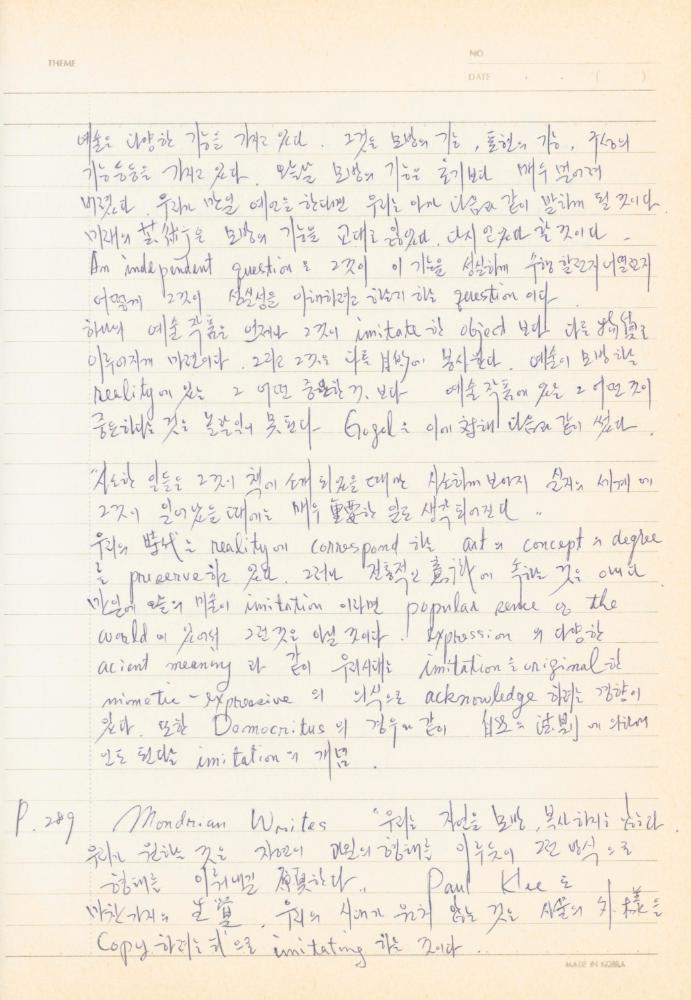 NO
THEME
DATE . . ( )
예술은 다양한 기능을 가지고 있다. 그것은 모방의 기능, 표현의 기능, 구성의
기능등등을 가지고 있다. 오늘날 모방의 기능은 초기보다 매우 멀어져
버렸다. 우리가 만일 예언을 한다면 우리는 아마 다음과 같이 말하게 될 것이다.
미래의 芸術은 모방의 기능을 고대로 잃었다. 다시 얻었다 할 것이다.
An independent question은 그것이 이 기능을 성실하게 수행할런지 어떨런지
어떻게 그것이 성실성을 이해하려고 하는지 하는 question이다.
하나의 예술작품은 언제나 그것이 imitate한 object보다 다른 物質로
이루어지게 마련이다. 그리고 그것은 다른 目的에 봉사한다. 예술이 모방하는
reality에 있는 그 어떤 중요한 것 보다 예술작품에 있는 그 어떤 것이
중요하다는 것을 볼 못한다 Gogol은 이에 対해 다음과 같이 썼다.
"사소한 일들은 그것이 책에 소개되었을 때만 사소하게 보이지 실지의 세계에
그것이 일어났을 때에는 매우 重要한 일로 생각되어진다"
우리의 時代는 reality에 correspond하는 art의 concept의 degree
를 preserve하고 있다. 그러나 전통적인 意味에 속하는 것은 아니다.
만일에 오늘의 미술이 imitation이라면 popular sense of the
world에 있어서 그런 것은 아닐 것이다. expression의 다양한
acient meaning과 같이 우리시대는 imitation을 original한
mimetic-expressive의 의식으로 acknowledge하려는 경향이
있다. 또한 Democritus의 경우와 같이 에 의하여
인도된다는 imitation의 개념.
P.289 Mondrian Writes "우리는 자연을 모방, 복사하지는 않는다.
우리가 원하는 것은 자연이 과일의 형태를 이루듯이 그런 방식으로
형태를 이뤄내길 願한다" Paul Klee도
마찬가지의 생각. 우리의 시대가 원치 않는 것은 사물의 外様을
Copy하려는 식으로 imitating하는 것이다..
MADE IN KOREA